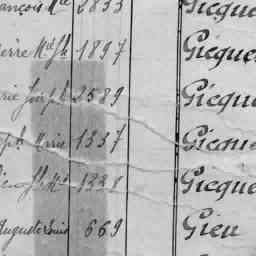 ançois Mie 2833 Gicque
ierre 1897 Gicque
rie Joseph 2589 Gicque
eph Marie 1337 Gicque
1338 Gicque
Auguste Louis 669 Gieu